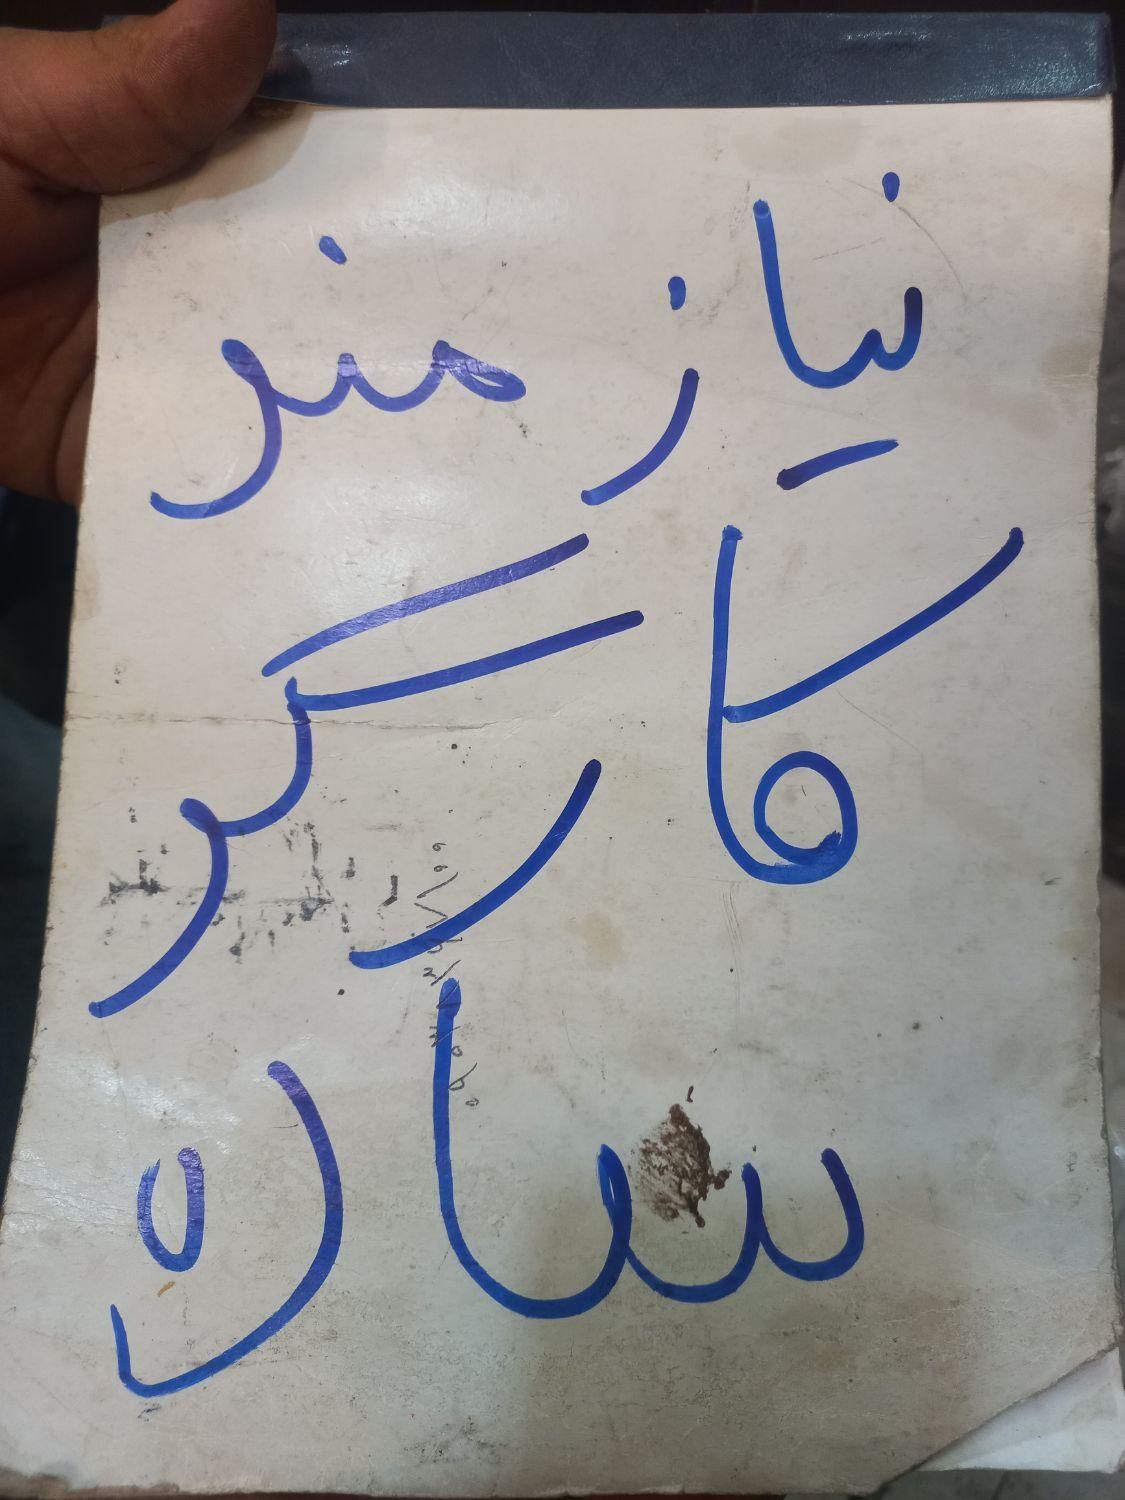 نیازمند
کارگر
ساده